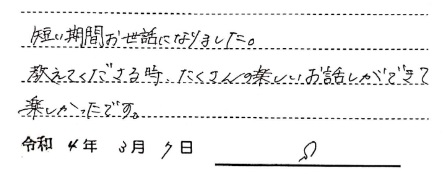 短い期間お世話になりました。
教えてくださる時、たくさんの楽しいお話しができて
楽しかったです。
令和 4年 3月 7日